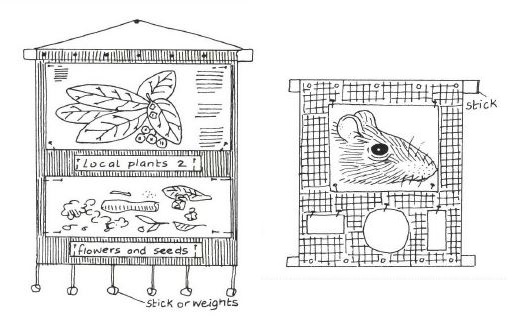 local plants 2
flowers and seeds
stick or weights
stick